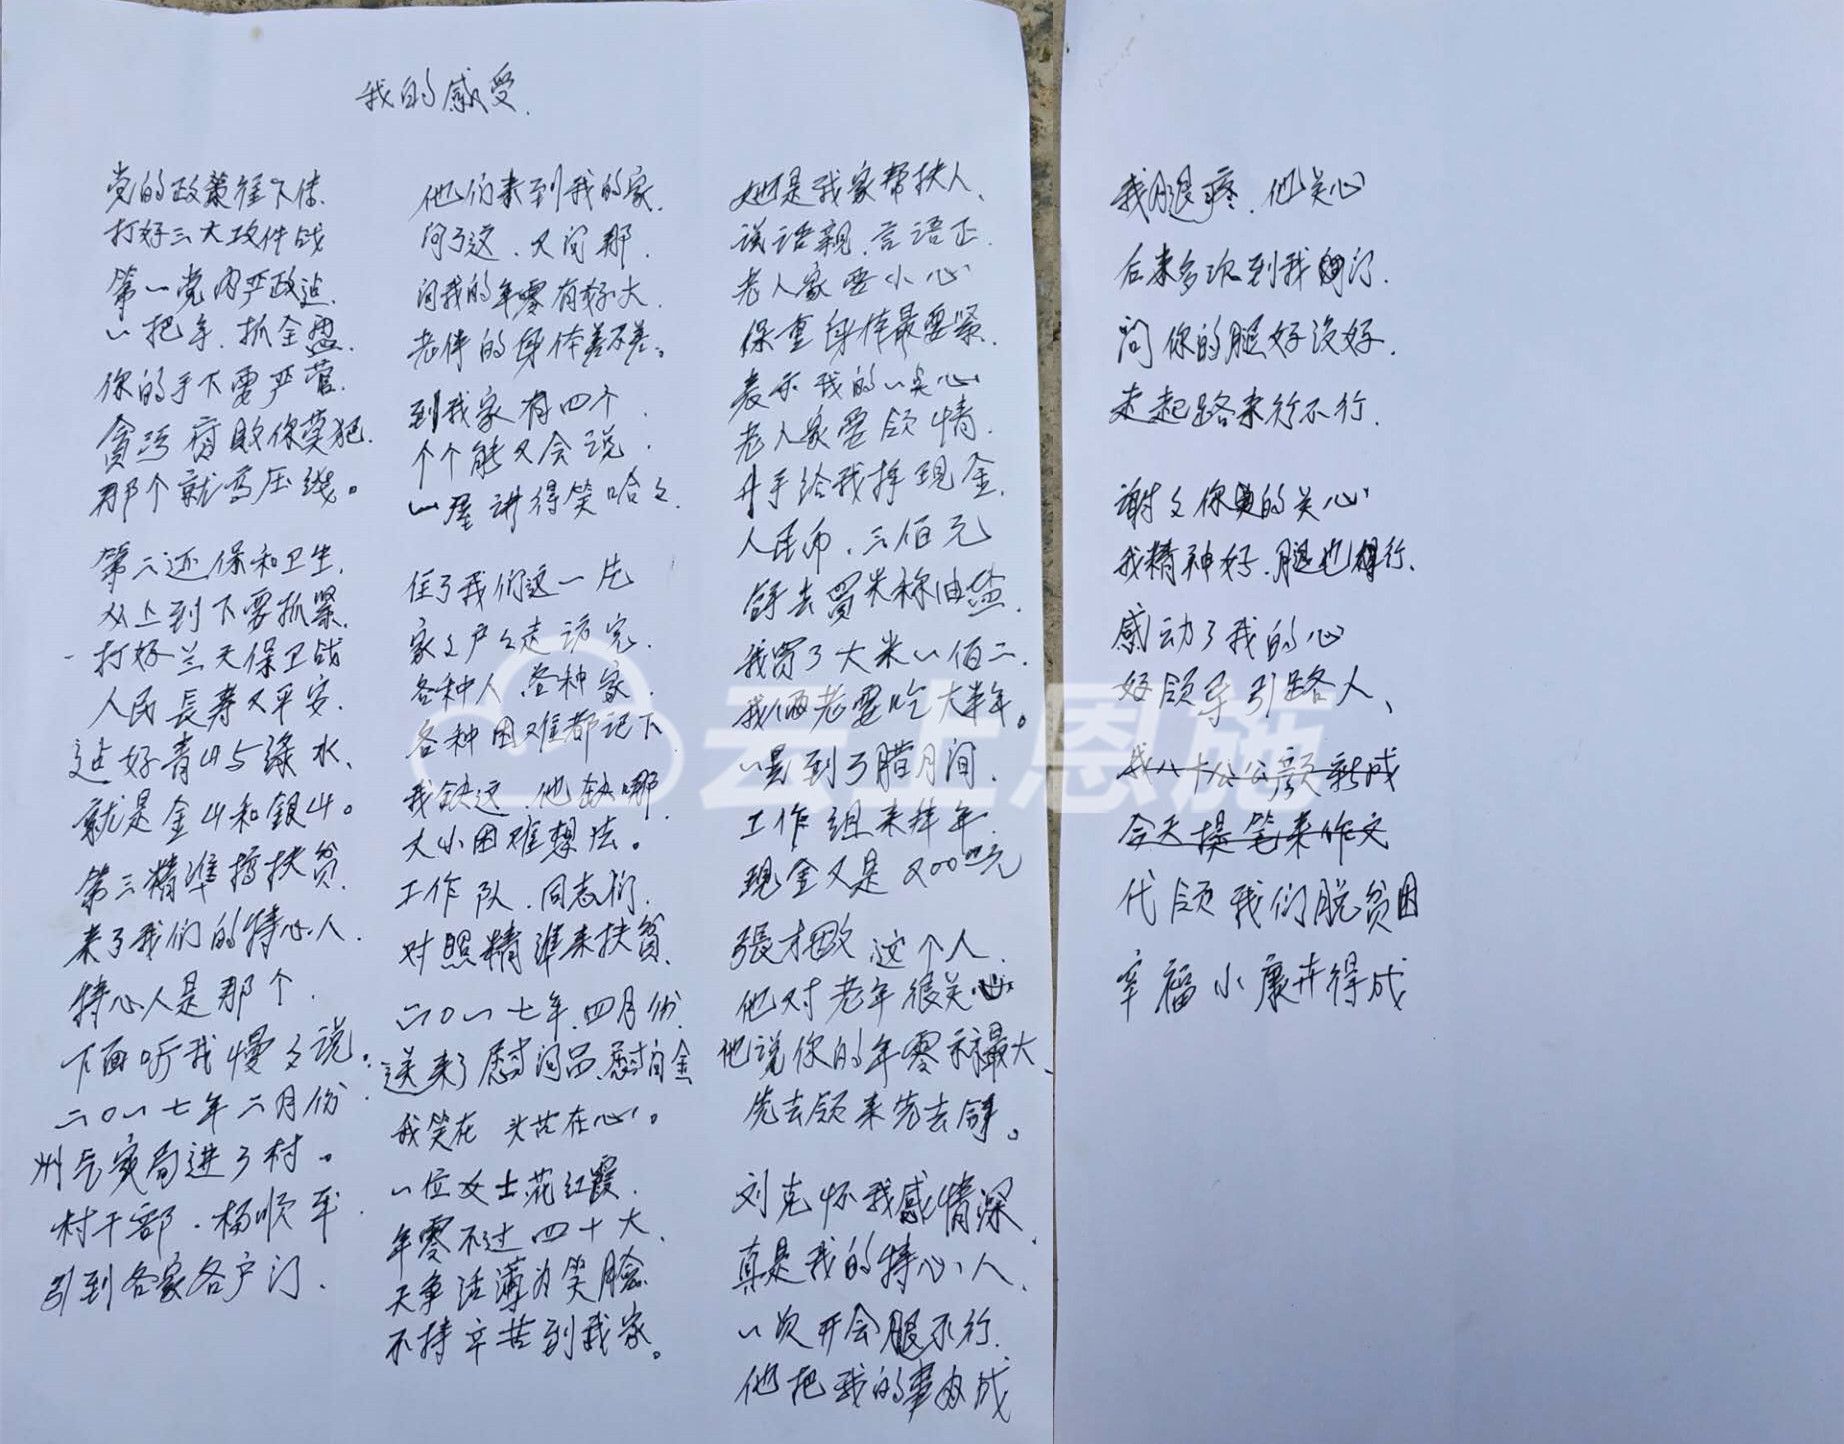 我的感受.
党的政策往下传.
打好三大攻件战
第一党内严政达.
一把手.抓全盘.
你的手下要严管.
贪污腐败你莫犯.
那个就高压线。
第二还保和卫生.
从上到下要抓紧.
打好兰天保卫战
人民長寿又平安.
达好青山与绿水、
就是金山和銀山。
第三精準搞扶贫.
来了我们的特心人.
特心人是那个.
下面听我慢々说。
二〇一七年二月份.
州气家局进了村。
村干部.杨顺平.
引到各家各户门.
他们来到我的家.
问了这.又问那.
问我的年零有好大.
老伴的身体差不差。
到我家有四个.
个个能又会说.
一屋讲得笑哈々.
住了我们这一片
家々户々走访完.
各种人.各种家.
各种困难都记下.
我缺这.他缺哪.
大小困难想法。
工作队.同志们.
对照精準来扶贫.
二〇一七年.四月份.
送来了慰问品、慰问金
我笑在 头甘在心。
一位女士花红霞.
年零不过四十大.
不持辛苦到我家。
她是我家帮扶人、
说话親.言语正.
老人家要小心
保重身体最要紧.
表示我的一点心
老人家要领情.
升手给我择现金.
人民币.三佰元
拿去買米称油盐.
我買了大米一佰二.
我俩老要吃大半年。
一晃到了腊月间.
工作组来拜年.
现金又是
張才 这个人.
他对老年很关心
他说你的年零 最大、
先去领来先去拿。
刘克怀我感情深、
真是我的特心人.
一次开会腿不行.
他把我的事办成
我腿疼.他关心
后来多次到我 门.
问你的腿好没好.
走起路来行不行.
谢々你 的关心
我精神好.腿也 行、
感动了我的心
好领导引路人、
我八十 公 颜新成
今天提笔来作文
代领我们脱贫困
幸福小康 得成